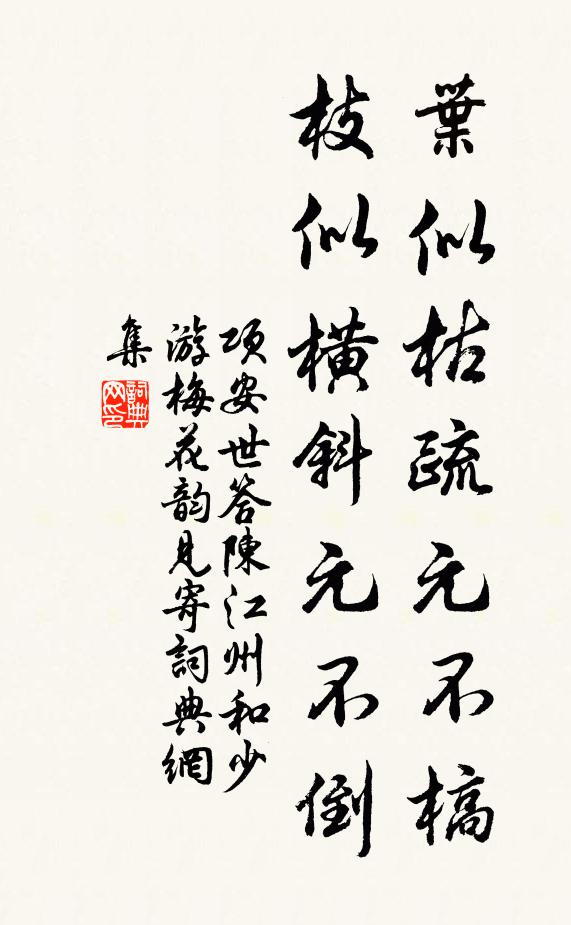 葉似枯疏元不槁
枝似橫斜元不倒
项安世答陳江州和少
游梅花韵見寄詞典網
集
詞典
网印